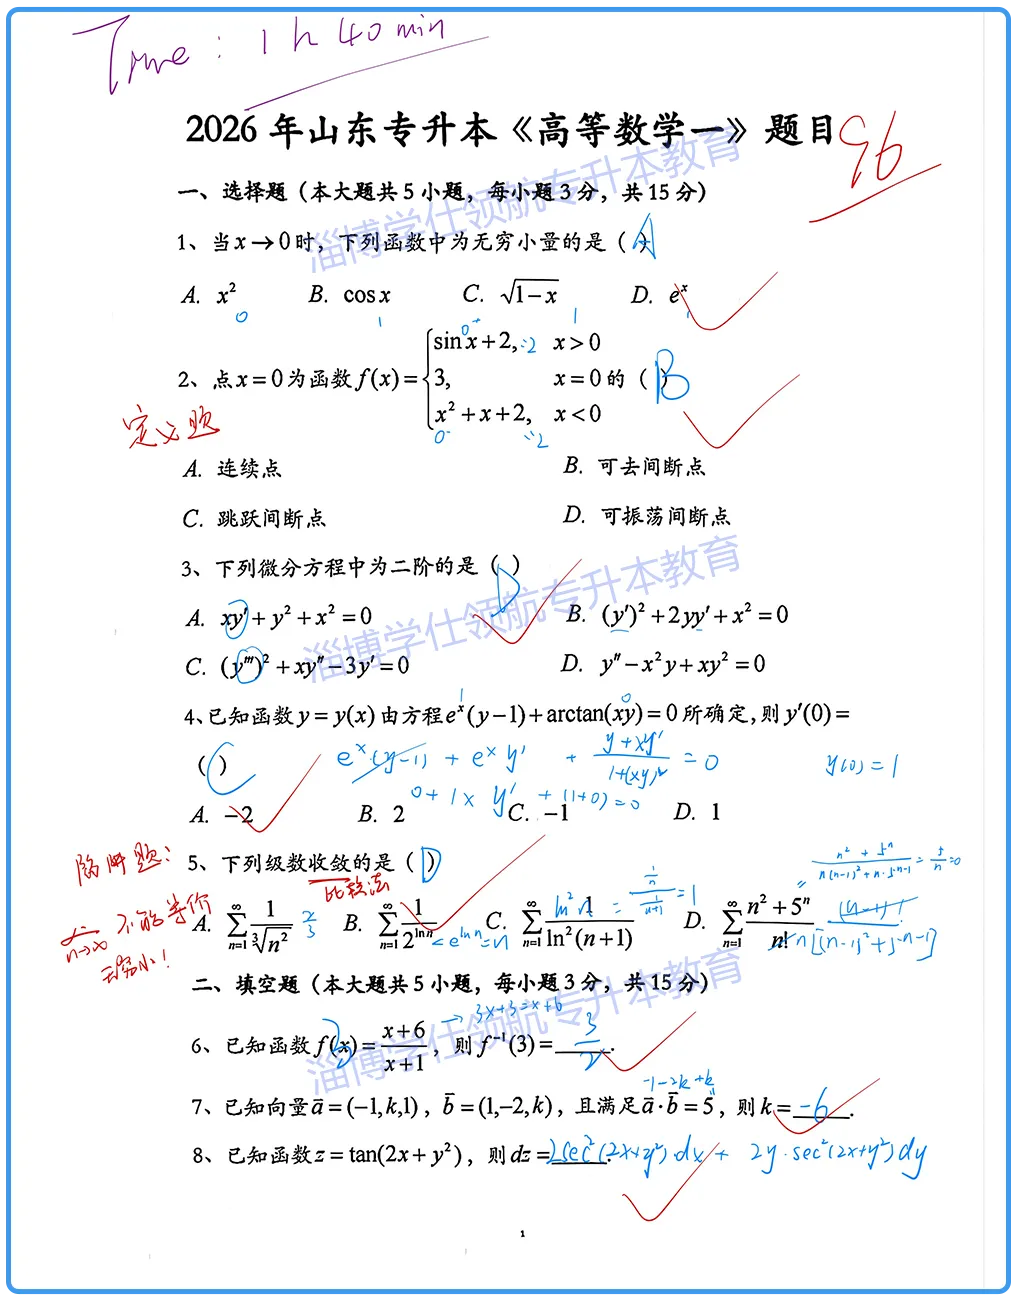 Time: 1h 40min
2026年山东专升本《高等数学一》题目
96
一、选择题（本大题共5小题，每小题3分，共15分）
1、当x→0时，下列函数中为无穷小量的是（ ）A
A. x² B. cos x C. √(1−x) D. eˣ
0 1 1 1
0⁺
sin x+2, =2 x>0
2、点x=0为函数f(x)={3, x=0的（ ）B
x²+x+2, x<0
0⁻ =2
定义题
A. 连续点 B. 可去间断点
C. 跳跃间断点 D. 可振荡间断点
3、下列微分方程中为二阶的是（ ）D
A. xy′+y²+x²=0 B. (y′)²+2yy′+x²=0
C. (y‴)²+xy″−3y′=0 D. y″−x²y+xy²=0
1 0
4、已知函数y=y(x)由方程eˣ(y−1)+arctan(xy)=0所确定,则y′(0)=
（ ）C eˣ(y−1) + eˣy′ + (y+xy′)/(1+(xy)²) = 0 y(0)=1
0+1×y′+(1+0)=0
A. −2 B. 2 C. −1 D. 1
陷阱题:
5、下列级数收敛的是（ ）D
比较法
n→∞ 不能等价无穷小!
A. ∑_{n=1}^{∞} 1/∛(n²) 2/3 B. ∑_{n=1}^{∞} 1/2^{ln n} <e^{ln n}=n C. ∑_{n=1}^{∞} 1/ln²(n+1) D. ∑_{n=1}^{∞} (n²+5ⁿ)/n!
二、填空题（本大题共5小题，每小题3分，共15分）
→ 3x+3=x+6
6、已知函数f(x)=(x+6)/(x+1)，则f⁻¹(3)=3/2.
−1−2k+k
7、已知向量a̅=(−1,k,1)，b̅=(1,−2,k)，且满足a̅·b̅=5，则k=−6.
8、已知函数z=tan(2x+y²)，则dz=2sec²(2x+y²)·dx + 2y·sec²(2x+y²)dy.
1
淄博学仕领航专升本教育
淄博学仕领航专升本教育
淄博学仕领航专升本教育